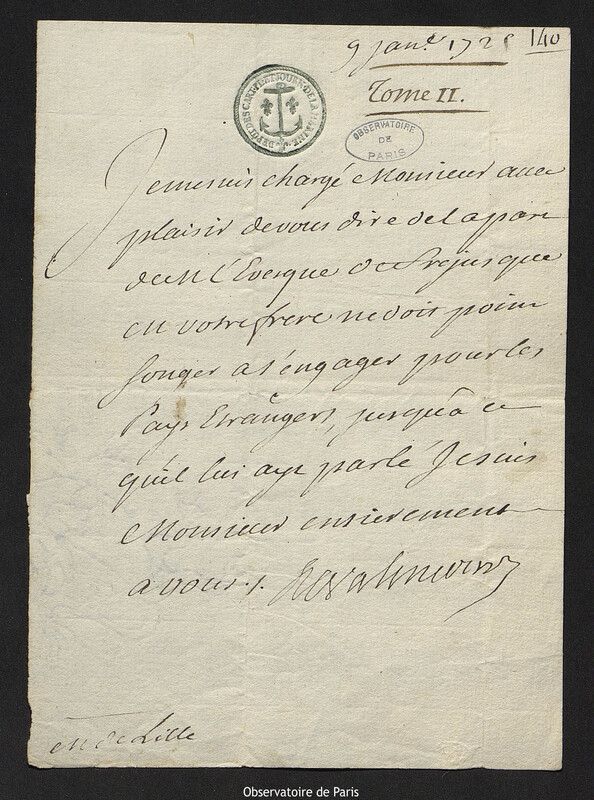 9 janv.r 1725 140
Tome II.
DEPOT DES CARTES ET JOURN. DE LA MARINE
OBSERVATOIRE
DE
PARIS
Je me suis chargé Monsieur avec
plaisir de vous dire de la part
de M l'Evesque de frejus que
M votre frere ne doit point
songer a s'engager pour les
Pays Etrangers, jusqu'a ce
qu'il lui aye parlé Je suis
Monsieur entierement
a vous ./.
M de Lille
Observatoire de Paris